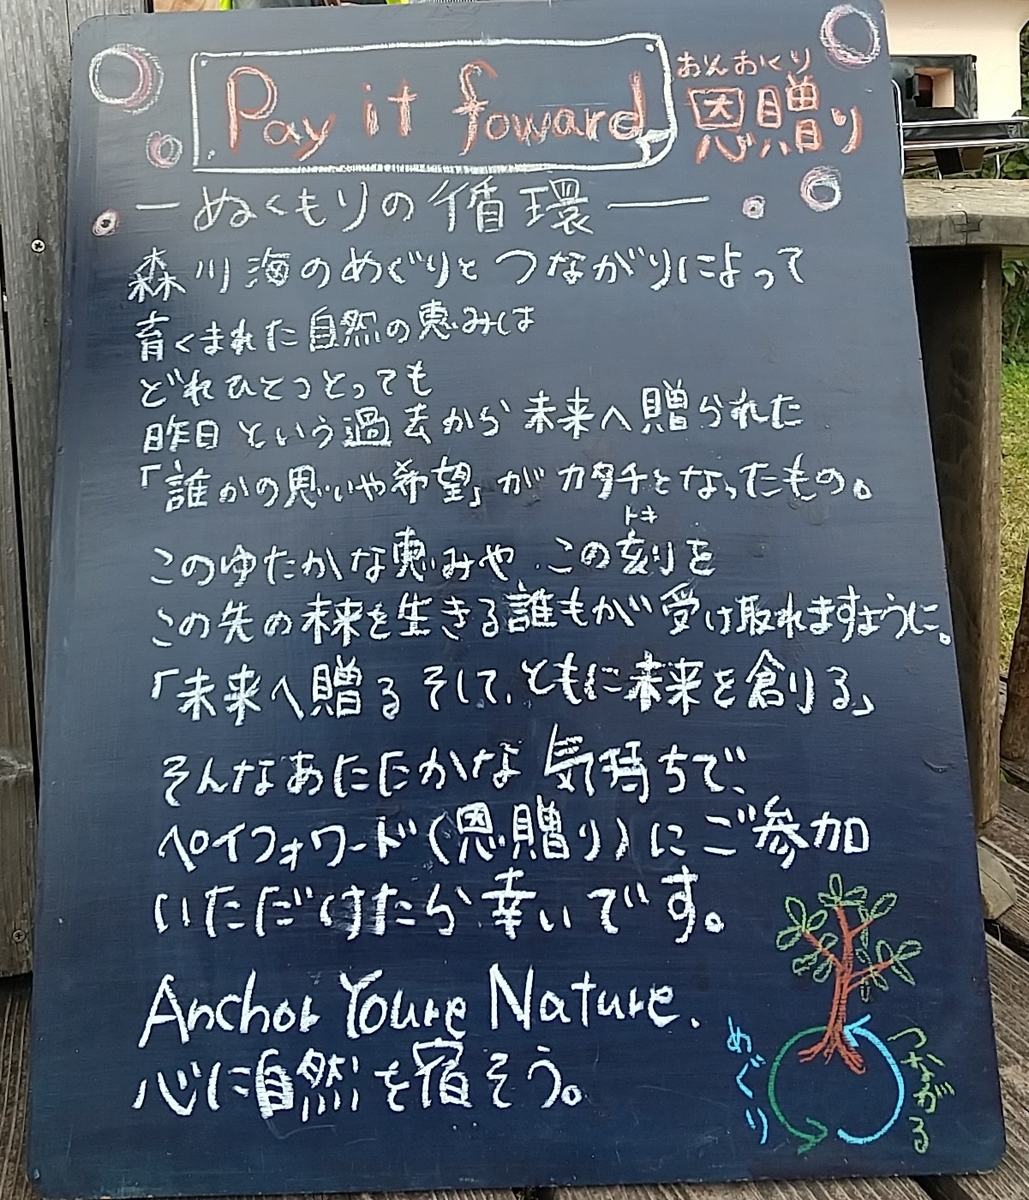 おんおくり
Pay it foward 恩贈り
―ぬくもりの循環―
森川海のめぐりとつながりによって
育くまれた自然の恵みは
どれひとつとっても
昨日という過去から未来へ贈られた
「誰かの思いや希望」がカタチとなったもの。
トキ
このゆたかな恵みや この刻を
この先の未来を生きる誰もが受け取れますように。
「未来へ贈る そして、ともに未来を創りる」
そんなあたたかな気持ちで、
ペイフォワード(恩贈り)にご参加
いただけたら幸いです。
Anchor Youre Nature.
心に自然を宿そう。
めぐり
つながる